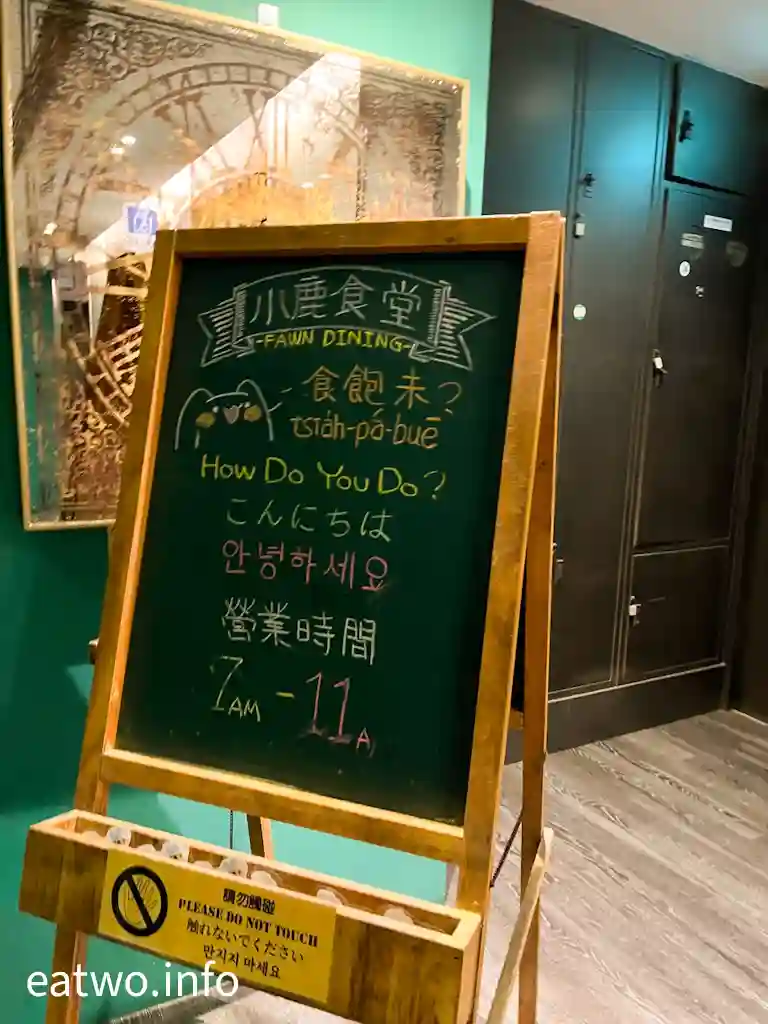 小鹿食堂
-FAWN DINING-
食飽未?
tsiáh-pá-buē
How Do You Do?
こんにちは
안녕하세요
營業時間
7AM - 11A
請勿觸碰
PLEASE DO NOT TOUCH
触れないでください
만지지 마세요
eatwo.info